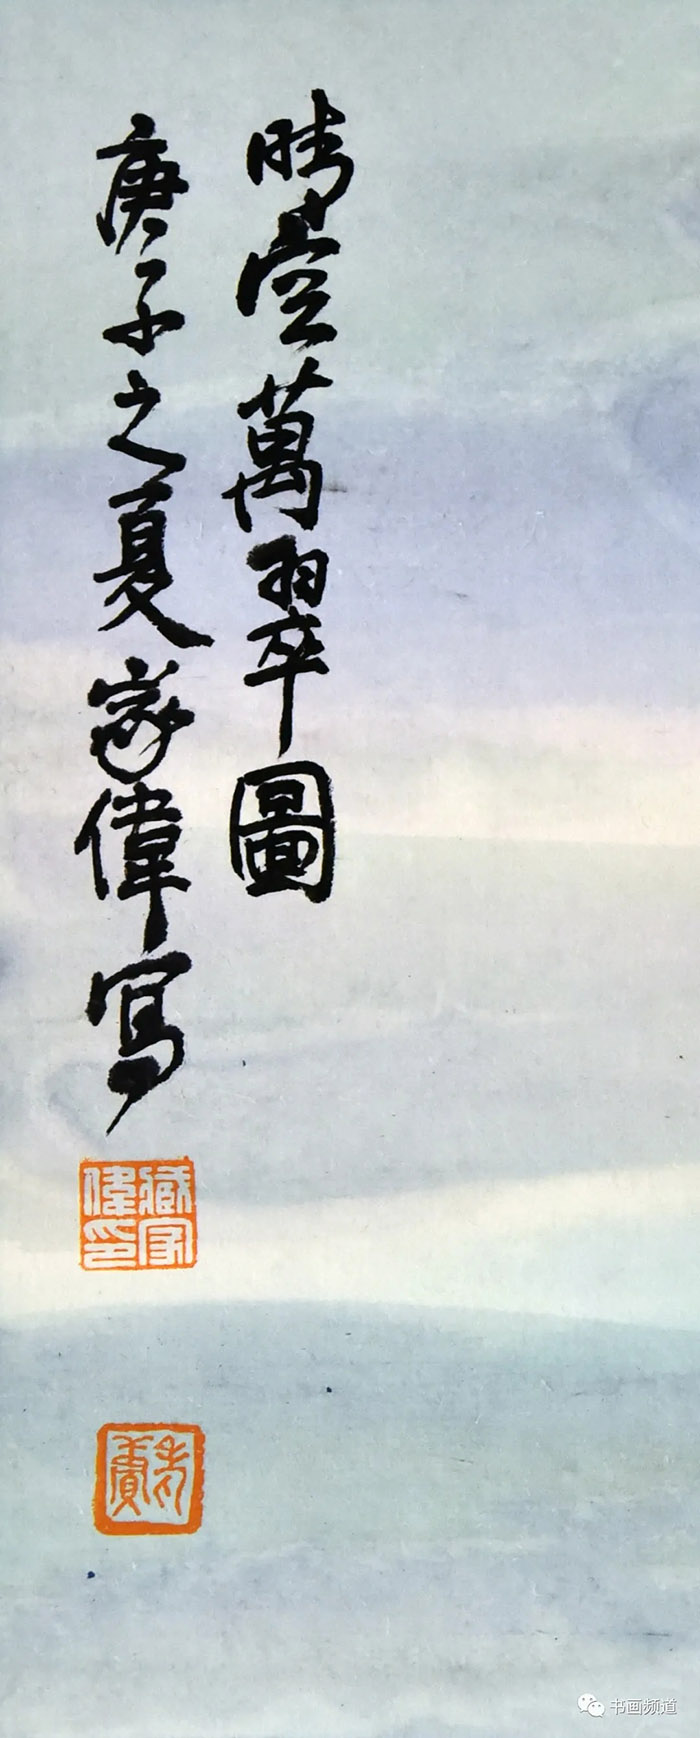 晴空萬翠圖
庚子之夏家偉寫
臧家偉印
书画频道